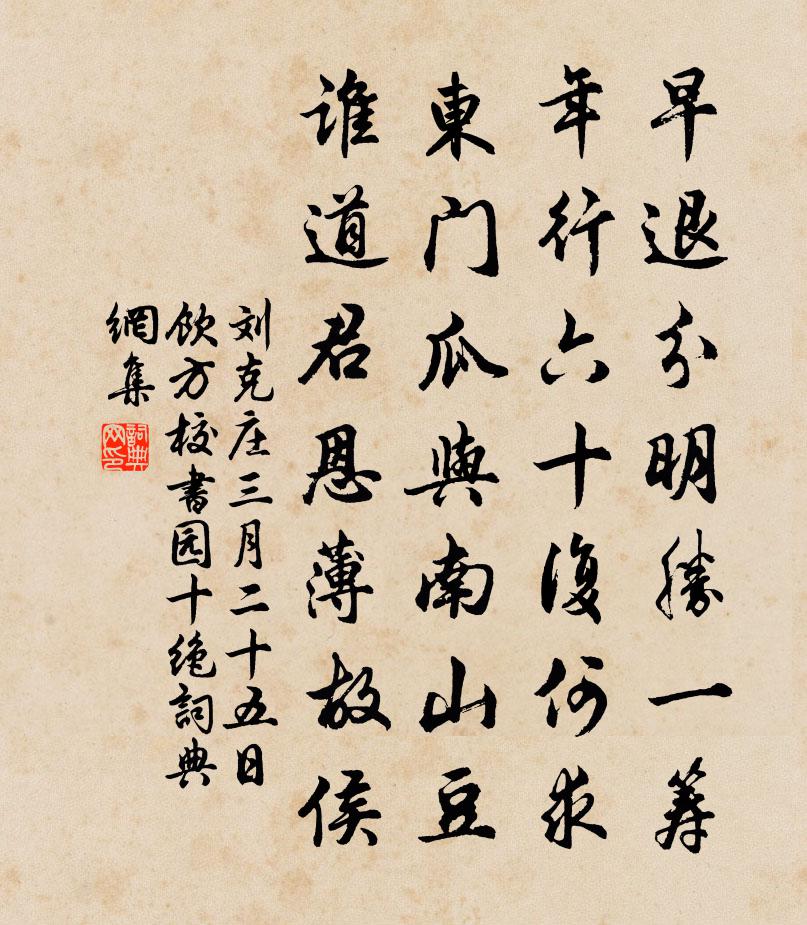 早退分明勝一筹
年行六十復何求
東门瓜與南山豆
谁道君恩薄故侯
刘克庄三月二十五日
饮方校書园十绝詞典
網集
詞典
网印